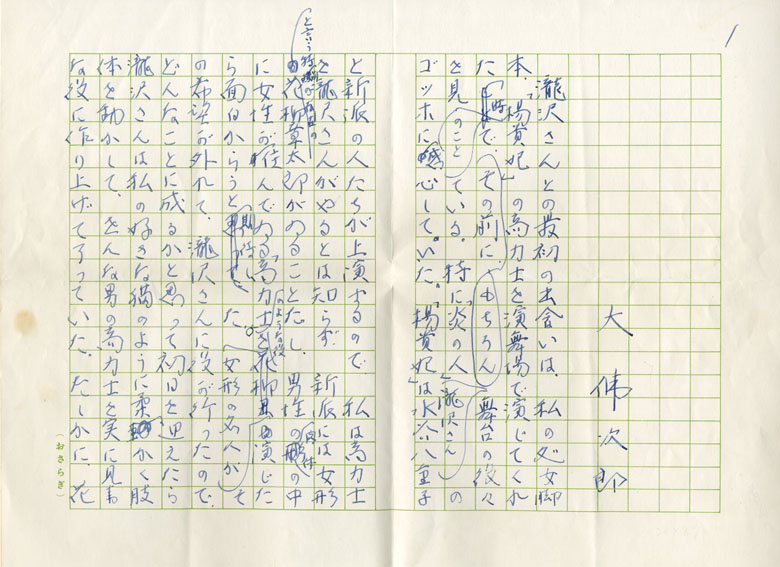 1
大佛次郎
瀧沢さんとの最初の出会いは、私の処女脚
本、「楊貴妃」の高力士を演舞場で演じてくれ
た時で、その前に、もちろん、舞台の役々
を見ている。特に「炎の人」の
のこと 瀧沢さん
ゴッホに感心していた。「楊貴妃」は水谷八重子
と新派の人たちが上演するので、私は高力士
を瀧沢さんがやるとは知らず、新派には女形
という特
の花柳章太郎がゐることだし、男性の の中
に女性が住んでゐる高力士を花柳 演じた
のような役
ら面白からうと期待してゐた。女形の名人がそ
の希望が外れて、瀧沢さんに役が行ったので、
どんなことに成るかと思って初日を迎えたら
瀧沢さんは私の好きな猫のように柔かく肢
体を動かして、そんな男の高力士を実に見事
な役に作り上げて了っていた。たしかに、花
(おさらぎ)